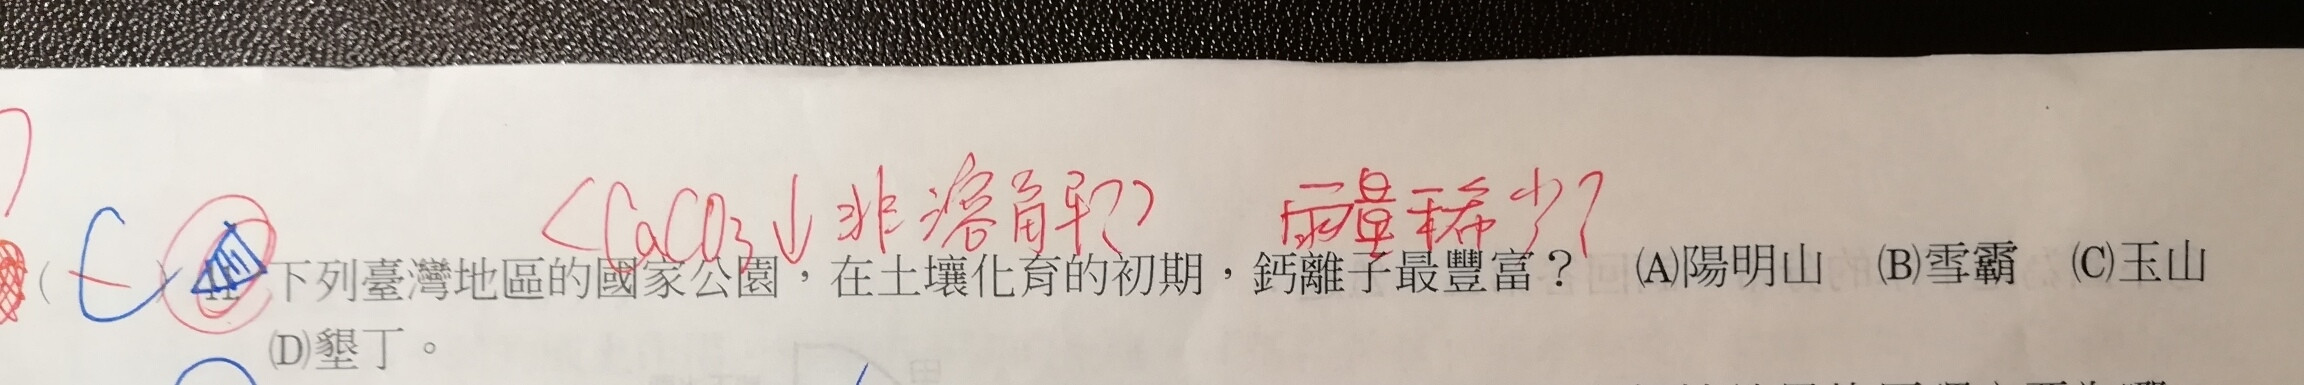 <CaCO₃↓非溶解?> 雨量稀少?
( C ) 下列臺灣地區的國家公園，在土壤化育的初期，鈣離子最豐富？ (A)陽明山 (B)雪霸 (C)玉山
(D)墾丁。